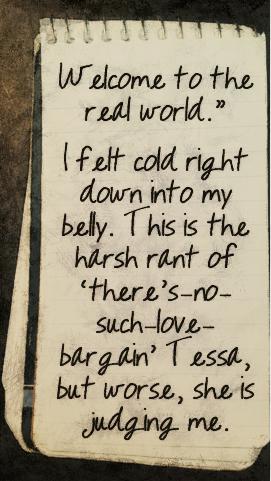 Welcome to the
real world.”
I felt cold right
down into my
belly. This is the
harsh rant of
‘there’s-no-
such-love-
bargain’ Tessa,
but worse, she is
judging me.